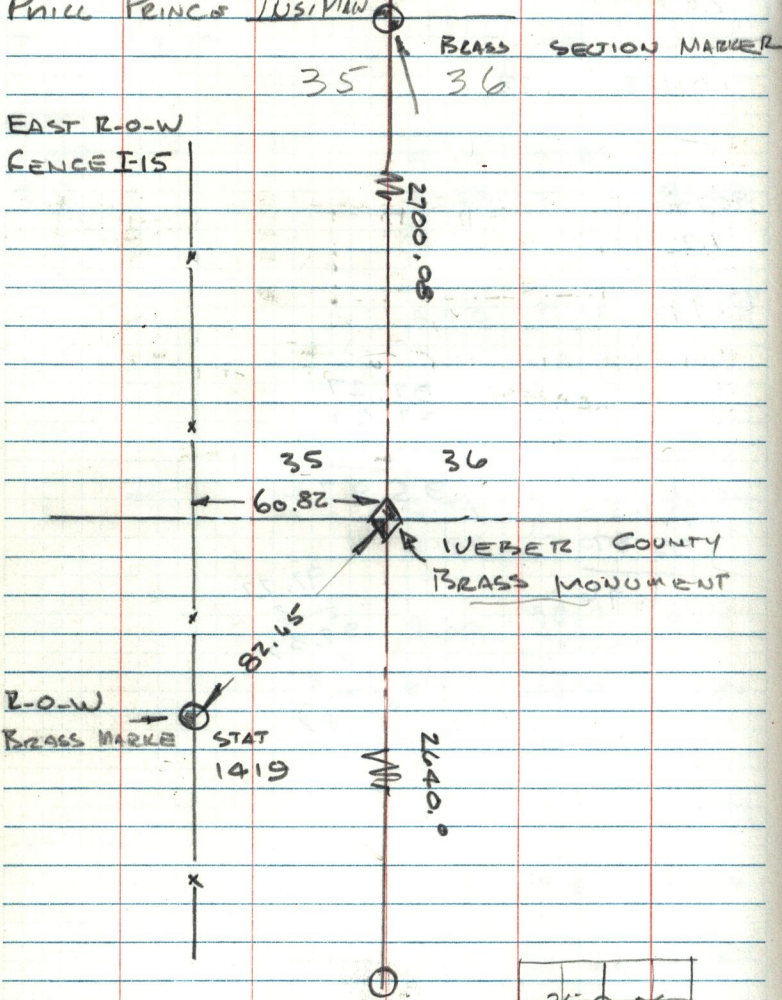 PHILL PRINCE
BRASS SECTION MARKER
35 36
EAST R-O-W
FENCE I-15
2700.08
35 36
60.82
WEBER COUNTY
BRASS MONUMENT
82.65
R-O-W
BRASS MARKE
STAT
1419
2640.0